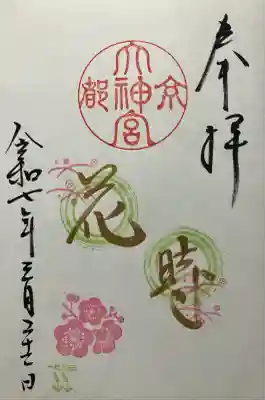 奉拝
京都大神宮
花時
令和七年三月日